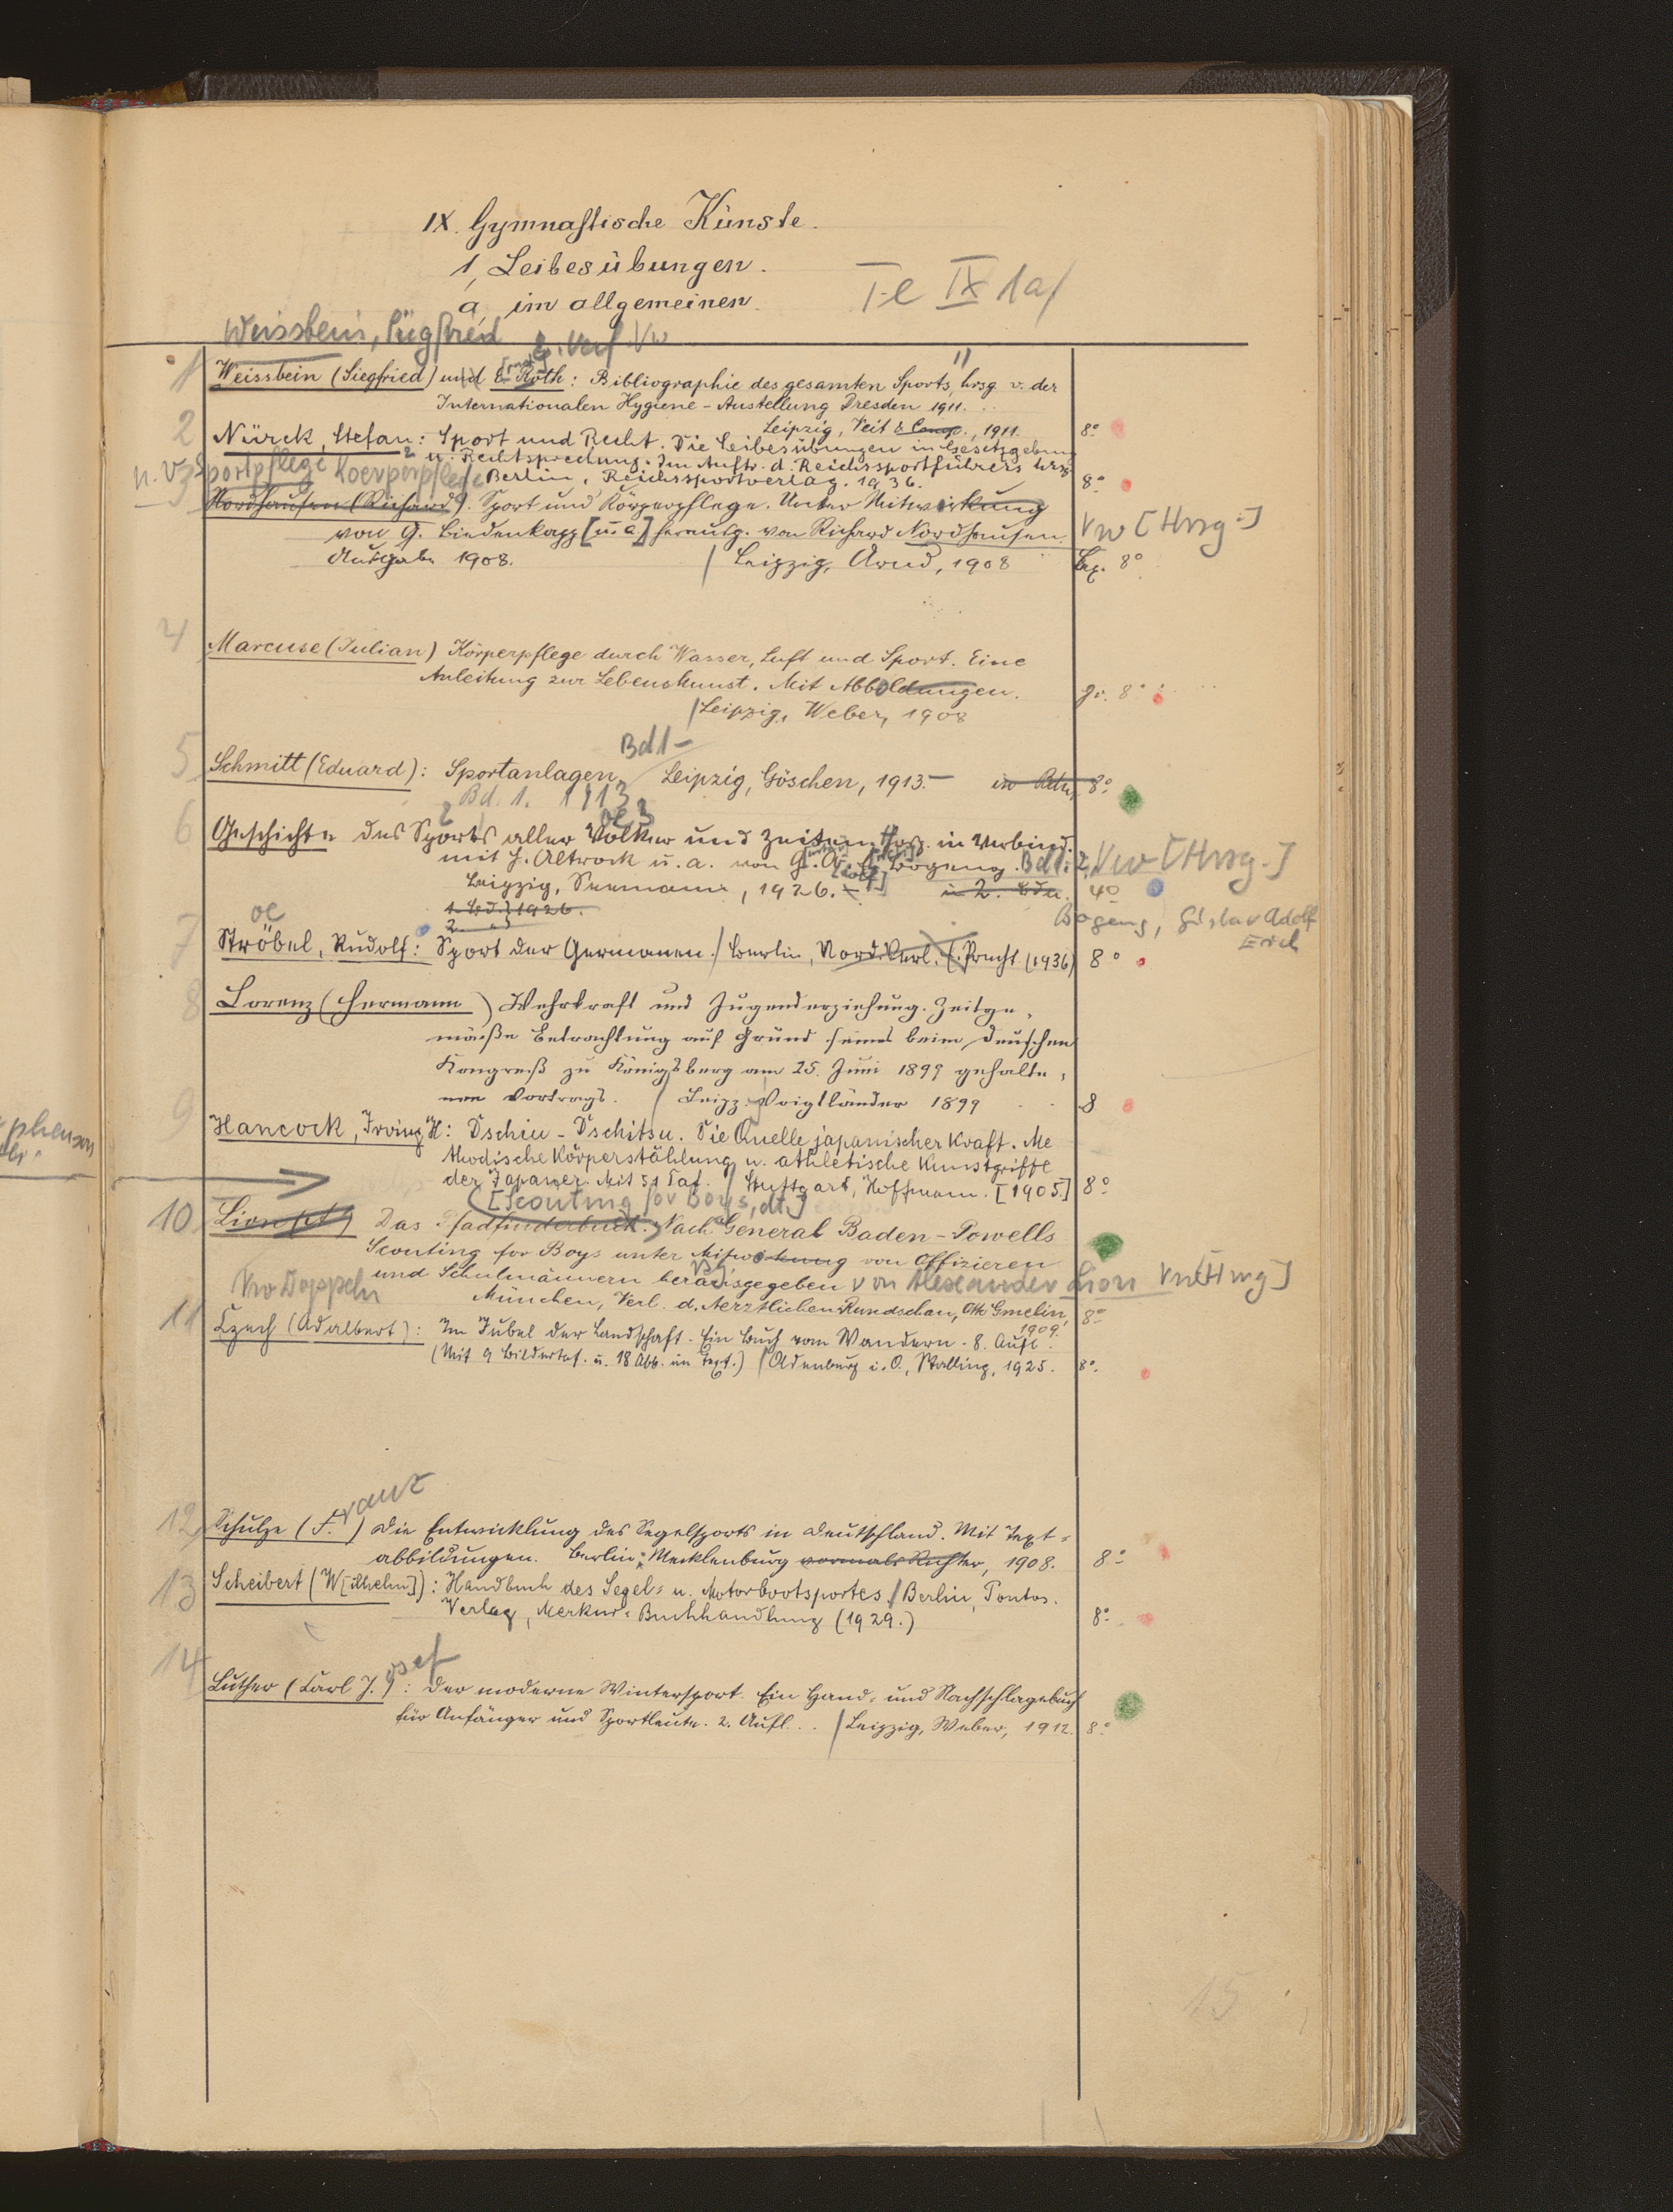 IX. Gymnastische Künste.
1, Leibesübungen.
a, im allgemeinen.
Te IX 1a/
Weissbein, Siegfried 2. Verf. Vw
1 Weissbein (Siegfried) und E. Roth: Bibliographie des gesamten Sports, hrsg. v. der
Internationalen Hygiene-Austellung Dresden 1911.
Leipzig, Veit & Comp., 1911. 8°
2 Nürck, Stefan: Sport und Recht. Die Leibesübungen in Gesetzgebung
u. Rechtsprechung. Im Auftr. d. Reichssportführers hrsg.
Berlin, Reichssportverlag. 1936. 8°
n. V. Sportpflege Koerperpflege
3 Nordhausen (Richard). Sport und Körperpflege. Unter Mitwirkung
von G. Biedenkapp [u. a] herausg. von Richard Nordhausen. Vw [Hrsg.]
Ausgabe 1908. / Leipzig, Arnd, 1908 Lex. 8°
4 Marcuse (Julian) Körperpflege durch Wasser, Luft und Sport. Eine
Anleitung zur Lebenskunst. Mit Abbildungen. gr. 8°
/ Leipzig, Weber, 1908
Bd 1-
5 Schmitt (Eduard): Sportanlagen / Leipzig, Göschen, 1913.- in Bdn, 8°
Bd. 1. 1913
6 Geschichte des Sports aller Völker und Zeiten. Hrsg. in Verbind.
mit J. Altrock u. a. von G. A. E. Bogeng. Bd 1. 2, Vw [Hrsg.]
Leipzig, Seemann, 1926.- in 2. Bdn. 4°
1. Bd. 1926.
2.
Bogeng, Gustav Adolf
Erich
oe
7 Ströbel, Rudolf: Sport der Germanen. / Berlin, Nord. Verl. Precht (1936) 8°
8 Lorenz (Hermann) Wehrkraft und Jugenderziehung. Zeitge-
mäße Betrachtung auf Grund seines beim Deutschen
Kongreß zu Königsberg am 25. Juni 1899 gehalte-
nen Vortrags. / Leipz. Voigtländer 1899 8
9 Hancock, Irving H: Dschiu-Dschitsu. Die Quelle japanischer Kraft. Me
thodische Körperstählung u. athletische Kunstgriffe
der Japaner. Mit 51 Taf. / Stuttgart, Hoffmann. [1905.] 8°
[Scouting for Boys, dt.]
10 Lion Das Pfadfinderbuch. Nach General Baden-Powells
Scouting for Boys unter Mitwirkung von Offizieren
und Schulmännern herausgegeben von Alexander Lion Vw [Hrsg]
München, Verl. d. Aerztlichen Rundschau, Otto Gmelin, 8°
1909.
Vw Doppeln
11 Czech (Adalbert): Im Jubel der Landschaft. Ein Buch vom Wandern. 8. Aufl.
(Mit 9 Bildertaf. u. 18 Abb. im Text.) / Oldenburg i. O., Stalling, 1925. 8°
12 Schulze (F.ranz) Die Entwicklung des Segelsports in Deutschland. Mit Text-
abbildungen. Berlin: Mecklenburg vormals Richter, 1908. 8°
13 Scheibert (W[ilhelm]): Handbuch des Segel- u. Motorbootsportes / Berlin, Pontos-
Verlag, Merkur-Buchhandlung (1929.) 8°
14 Luther (Carl J.osef): Der moderne Wintersport. Ein Hand- und Nachschlagebuch
für Anfänger und Sportleute. 2. Aufl. / Leipzig, Weber, 1912. 8°
15